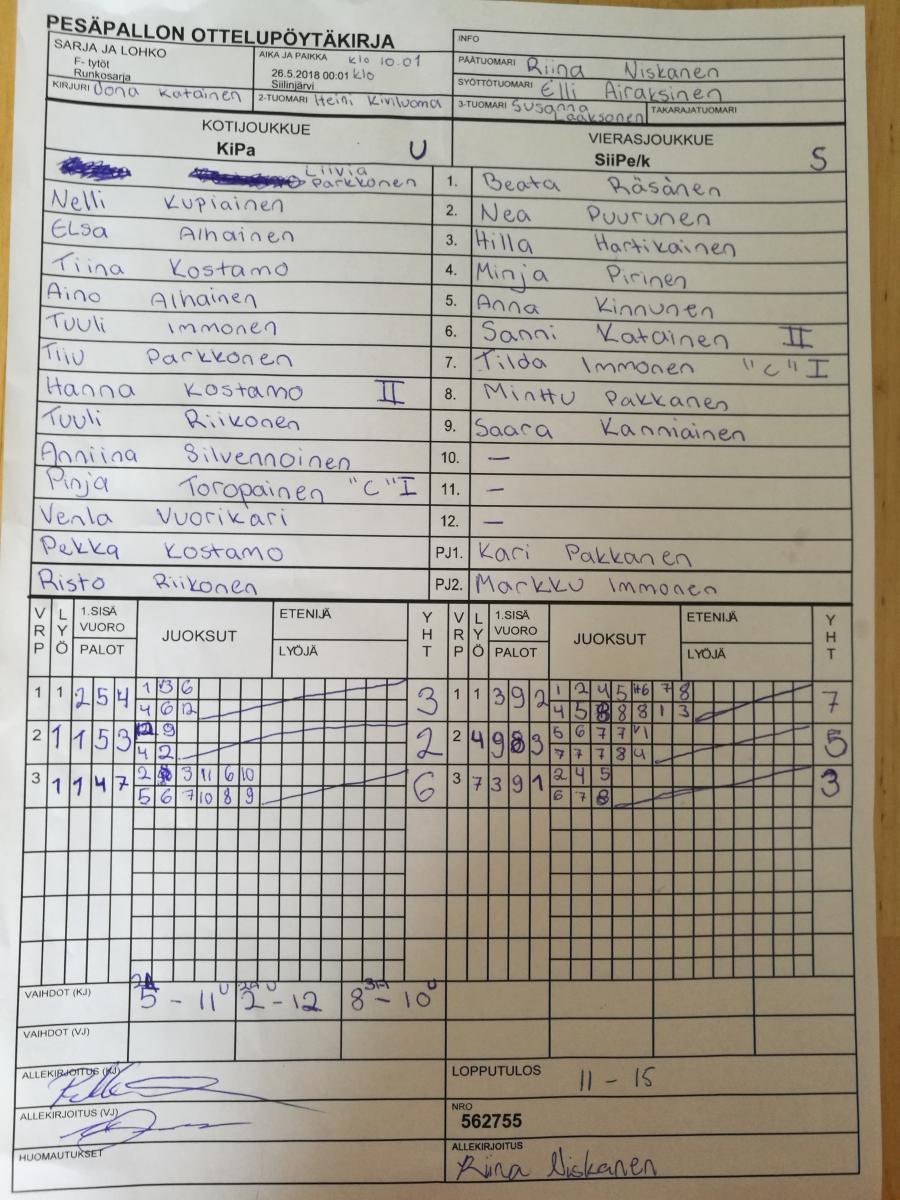 PESÄPALLON OTTELUPÖYTÄKIRJA
INFO
SARJA JA LOHKO
F- tytöt
Runkosarja
AIKA JA PAIKKA klo 10.01
26.5.2018 00:01 klo
Siilinjärvi
PÄÄTUOMARI Riina Niskanen
SYÖTTÖTUOMARI Elli Airaksinen
KIRJURI Jona Katainen
2-TUOMARI Heini Kiviluoma
3-TUOMARI Susanna Laaksonen
TAKARAJATUOMARI
KOTIJOUKKUE
KiPa U
VIERASJOUKKUE
SiiPe/k S
Liivia Parkkonen 1. Beata Räsänen
Nelli Kupiainen 2. Nea Puurunen
Elsa Alhainen 3. Hilla Hartikainen
Tiina Kostamo 4. Minja Pirinen
Aino Alhainen 5. Anna Kinnunen
Tuuli Immonen 6. Sanni Katainen II
Tiiu Parkkonen 7. Tilda Immonen "C" I
Hanna Kostamo II 8. Minttu Pakkanen
Tuuli Riikonen 9. Saara Kanniainen
Anniina Silvennoinen 10. —
Pinja Toropainen "C" I 11. —
Venla Vuorikari 12. —
Pekka Kostamo PJ1. Kari Pakkanen
Risto Riikonen PJ2. Markku Immonen
VRP LYÖ 1.SISÄ VUORO PALOT JUOKSUT ETENIJÄ LYÖJÄ YHT VRP LYÖ 1.SISÄ VUORO PALOT JUOKSUT ETENIJÄ LYÖJÄ YHT
1 1 2 5 4 1 3 6 3 1 1 3 9 2 1 2 4 5 6 7 8 7
4 6 12 4 5 8 8 8 1 3
2 1 1 5 3 9 2 2 4 9 8 3 5 6 7 7 1 5
4 2 7 7 7 8 4
3 1 1 4 7 2 3 11 6 10 6 3 7 3 9 1 2 4 5 3
5 6 7 10 8 9 6 7 8
VAIHDOT (KJ) 5 - 11 U 2 - 12 U 8 - 10 U
VAIHDOT (VJ)
ALLEKIRJOITUS (KJ)
LOPPUTULOS 11 - 15
ALLEKIRJOITUS (VJ)
NRO
562755
HUOMAUTUKSET
ALLEKIRJOITUS
Riina Niskanen